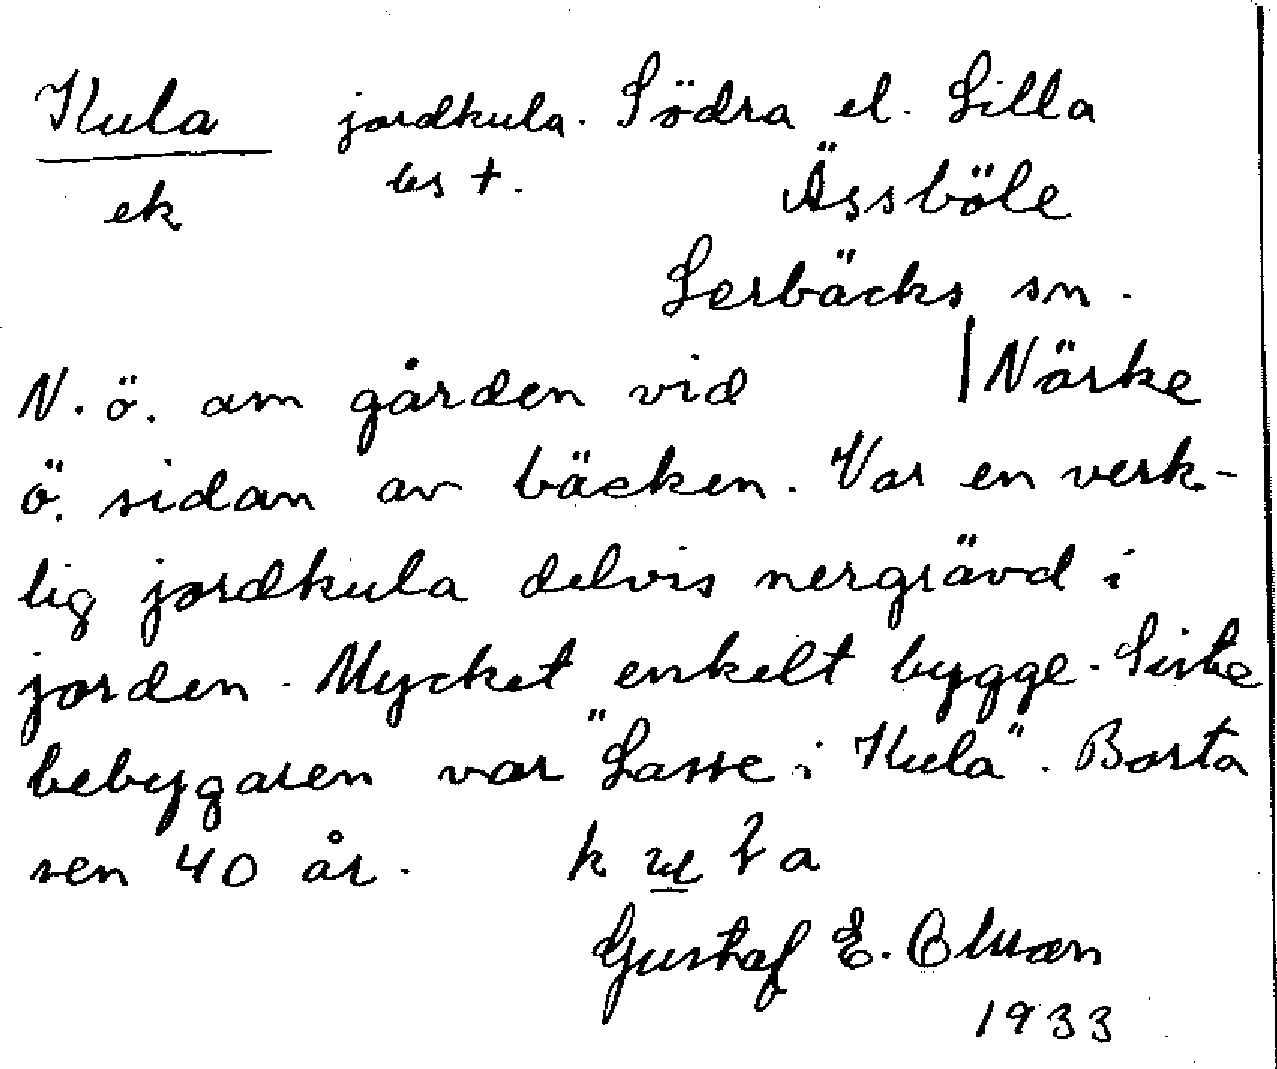 Kula jordkula. Södra el. Lilla
ek bs †. Ässböle
Lerbäcks sn.
N. ö. om gården vid | Närke
ö. sidan av bäcken. Var en verk-
lig jordkula delvis nergrävd i
jorden. Mycket enkelt bygge. Siste
bebygaren var "Lasse i Kula". Borta
sen 40 år. k u l a
Gustaf E.
1933